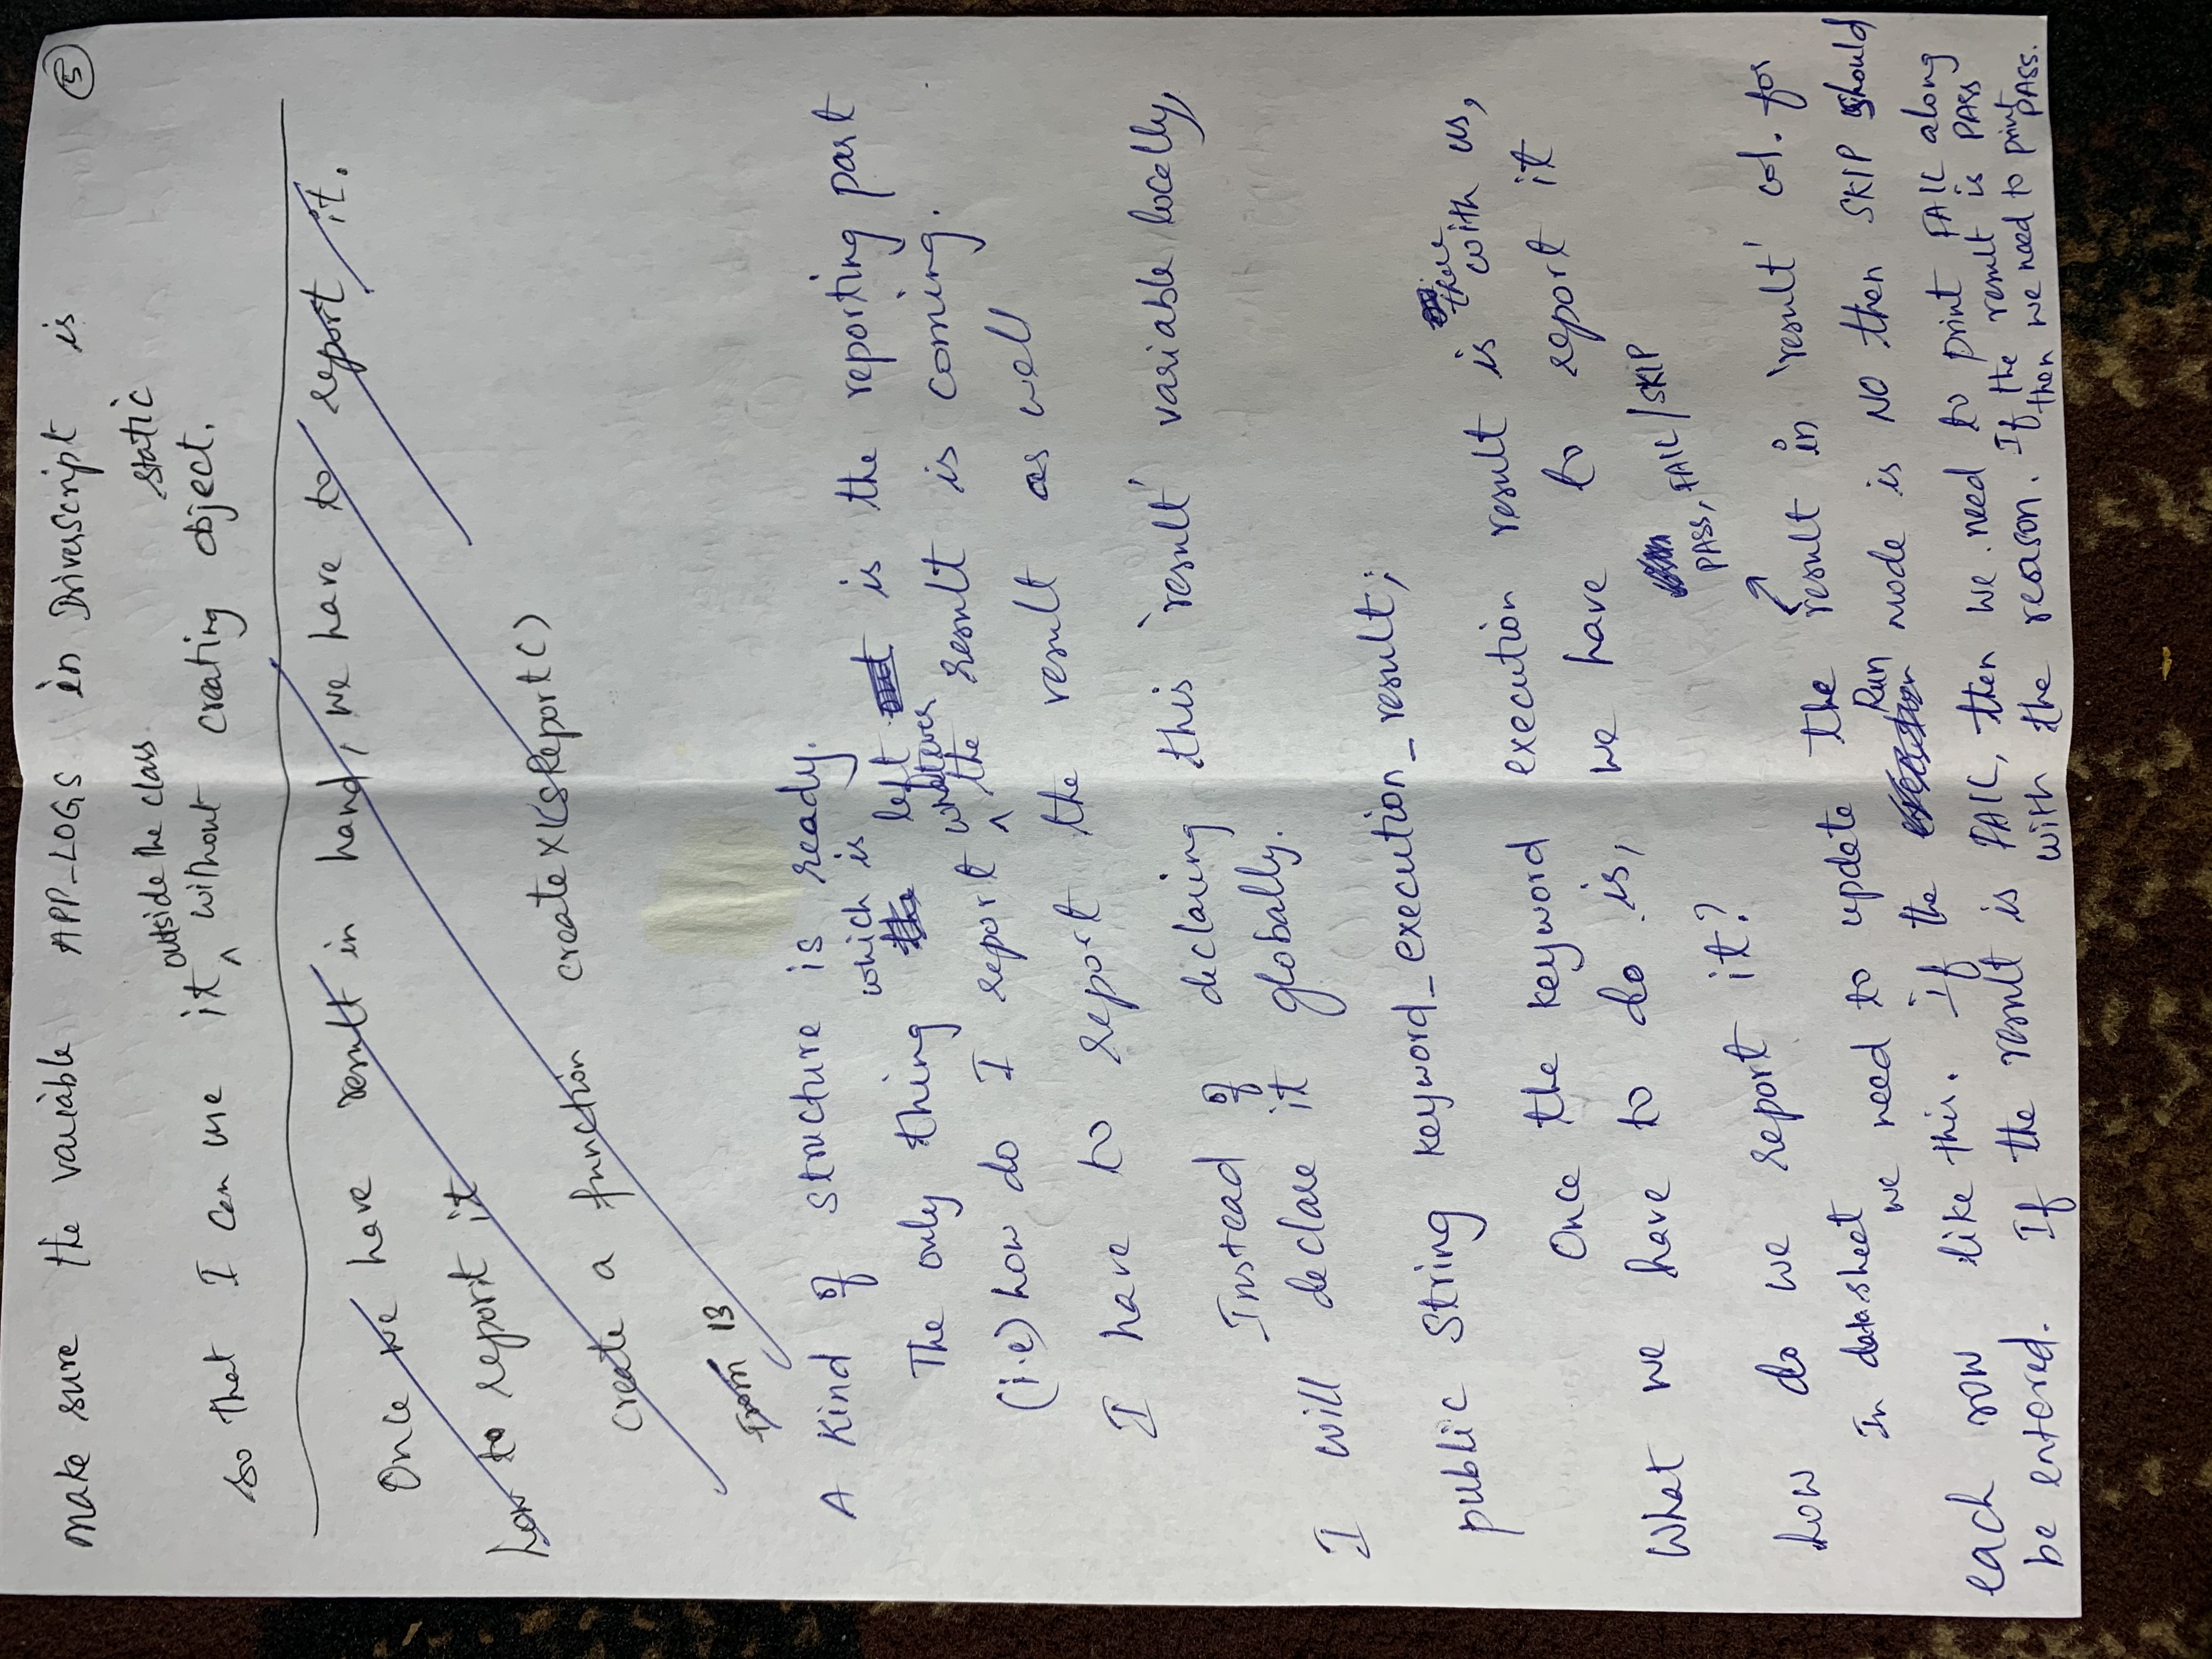 make sure the variable APP_LOGS in DriverScript is static
5
so that I can use it outside the class without creating object.
Once we have result in hand, we have to report it.
how to report it
create a function createXLSReport()
From 13
A kind of structure is ready.
The only thing which is left is the reporting part
(i.e) how do I report whatever the result is coming.
I have to report the result as well
Instead of declaring this 'result' variable locally,
I will declare it globally.
public String keyword_execution_result;
Once the keyword execution result is there with us,
What we have to do is, we have to report it
PASS, FAIL/SKIP
how do we report it?
In datasheet we need to update the result in 'result' col. for
each row like this. If the Run mode is NO then SKIP should
be entered. If the result is FAIL, then we need to print FAIL along
with the reason. If the result is PASS
then we need to print PASS.